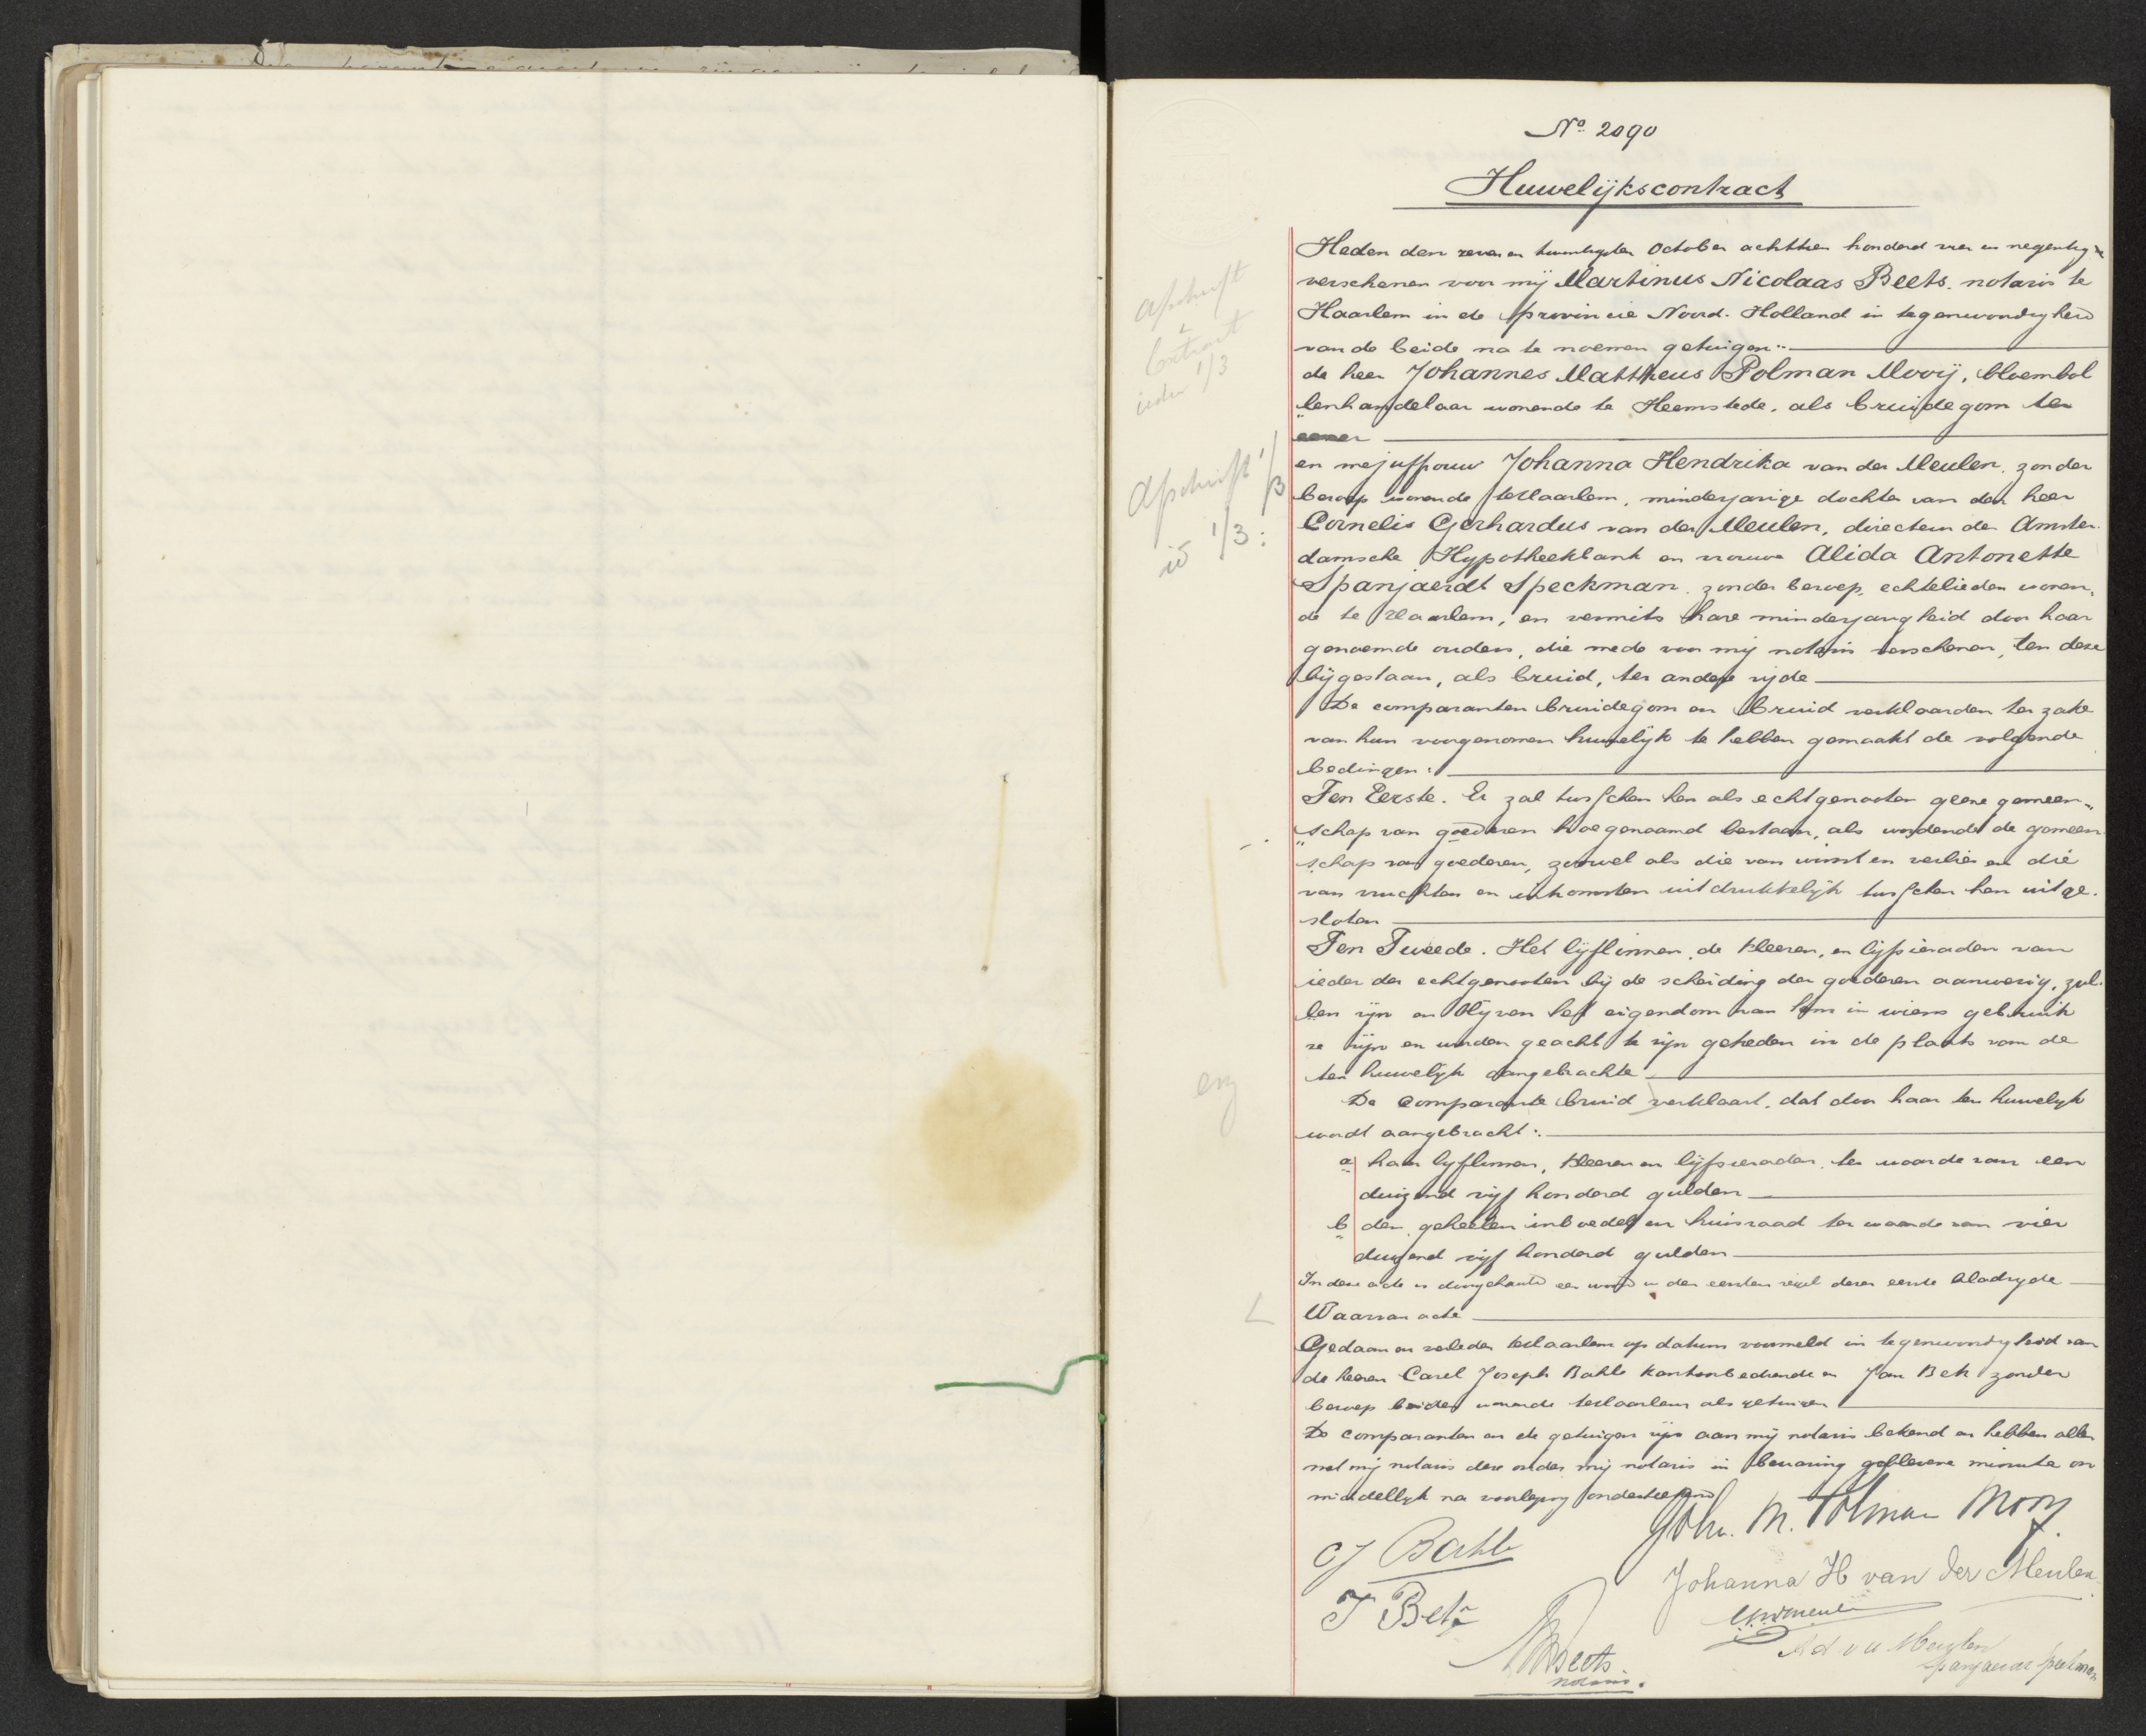 No 2090
Huwelijkscontract
Heden den zeven en twintigsten October achttien honderd vier en negentig
verschenen voor mij Martinus Nicolaas Beets, notaris te
Haarlem in de provincie Noord-Holland in tegenwoordigheid
van de beide na te noemen getuigen:
de heer Johannes Mattheus Polman Mooij, bloembol
"lenhandelaar wonende te Heemstede, als bruidegom ter
eener
en mejuffrouw Johanna Hendrika van der Meulen, zonder
beroep wonende te Haarlem, minderjarige dochter van den heer
Cornelis Gerhardus van der Meulen, directeur der Amster-
damsche Hypotheekbank en vrouwe Alida Antonette
Spanjaerdt Speckman, zonder beroep, echtelieden wonen,
de te Haarlem, en vermits hare minderjarigheid door haar
genoemde ouders, die mede voor mij notaris verschenen, ten deze
bijgestaan, als bruid, ter andere zijde
De comparanten bruidegom en bruid verklaarden ter zake
van hun voorgenomen huwelijk te hebben gemaakt de volgende
bedingen:
Ten Eerste. Er zal tusschen hen als echtgenooten geene gemeen"
"schap van goederen hoegenaamd bestaan, als wordende de gemeen
schap van goederen, zoowel als die van winst en verlies en die
van vruchten en inkomsten uitdrukkelijk tusschen hen uitge-
sloten
Ten Tweede. Het lijflinnen, de kleeren, en lijfsieraden van
ieder der echtgenooten bij de scheiding der goederen aanwezig, zul-
len zijn en blijven het eigendom van hem in wiens gebruik
ze zijn en worden geacht te zijn getreden in de plaats van de
ten huwelijk aangebrachte
De comparante bruid verklaart, dat door haar ten huwelijk
wordt aangebracht:
a haar lijflinnen, kleeren en lijfsieraden, ter waarde van een
duizend vijf honderd gulden
b den geheelen inboedel en huisraad ter waarde van vier
duizend vijf honderd gulden
In deze acte is doorgehaald een woord in den eersten regel dezer eerste bladzijde
Waarvan acte
Gedaan en verleden te Haarlem op datum voormeld in tegenwoordigheid van
de heeren Carel Joseph Bahle kantoorbediende en Jan Bek zonder
beroep beiden wonende te Haarlem als getuigen
De comparanten en de getuigen zijn aan mij notaris bekend en hebben allen
met mij notaris deze onder mij notaris in bewaring gebleven minute on
middellijk na voorlezing onderteekend
Joh. M. Polman Mooy.
CJ Bahle
Johanna H van der Meulen
J Bek
Ad v d Meulen
Spanjaerdt Speckman
MNBeets
notaris.
afschrift
&
extract
ieder 1/3
Afschrift 1/3
id 1/3: